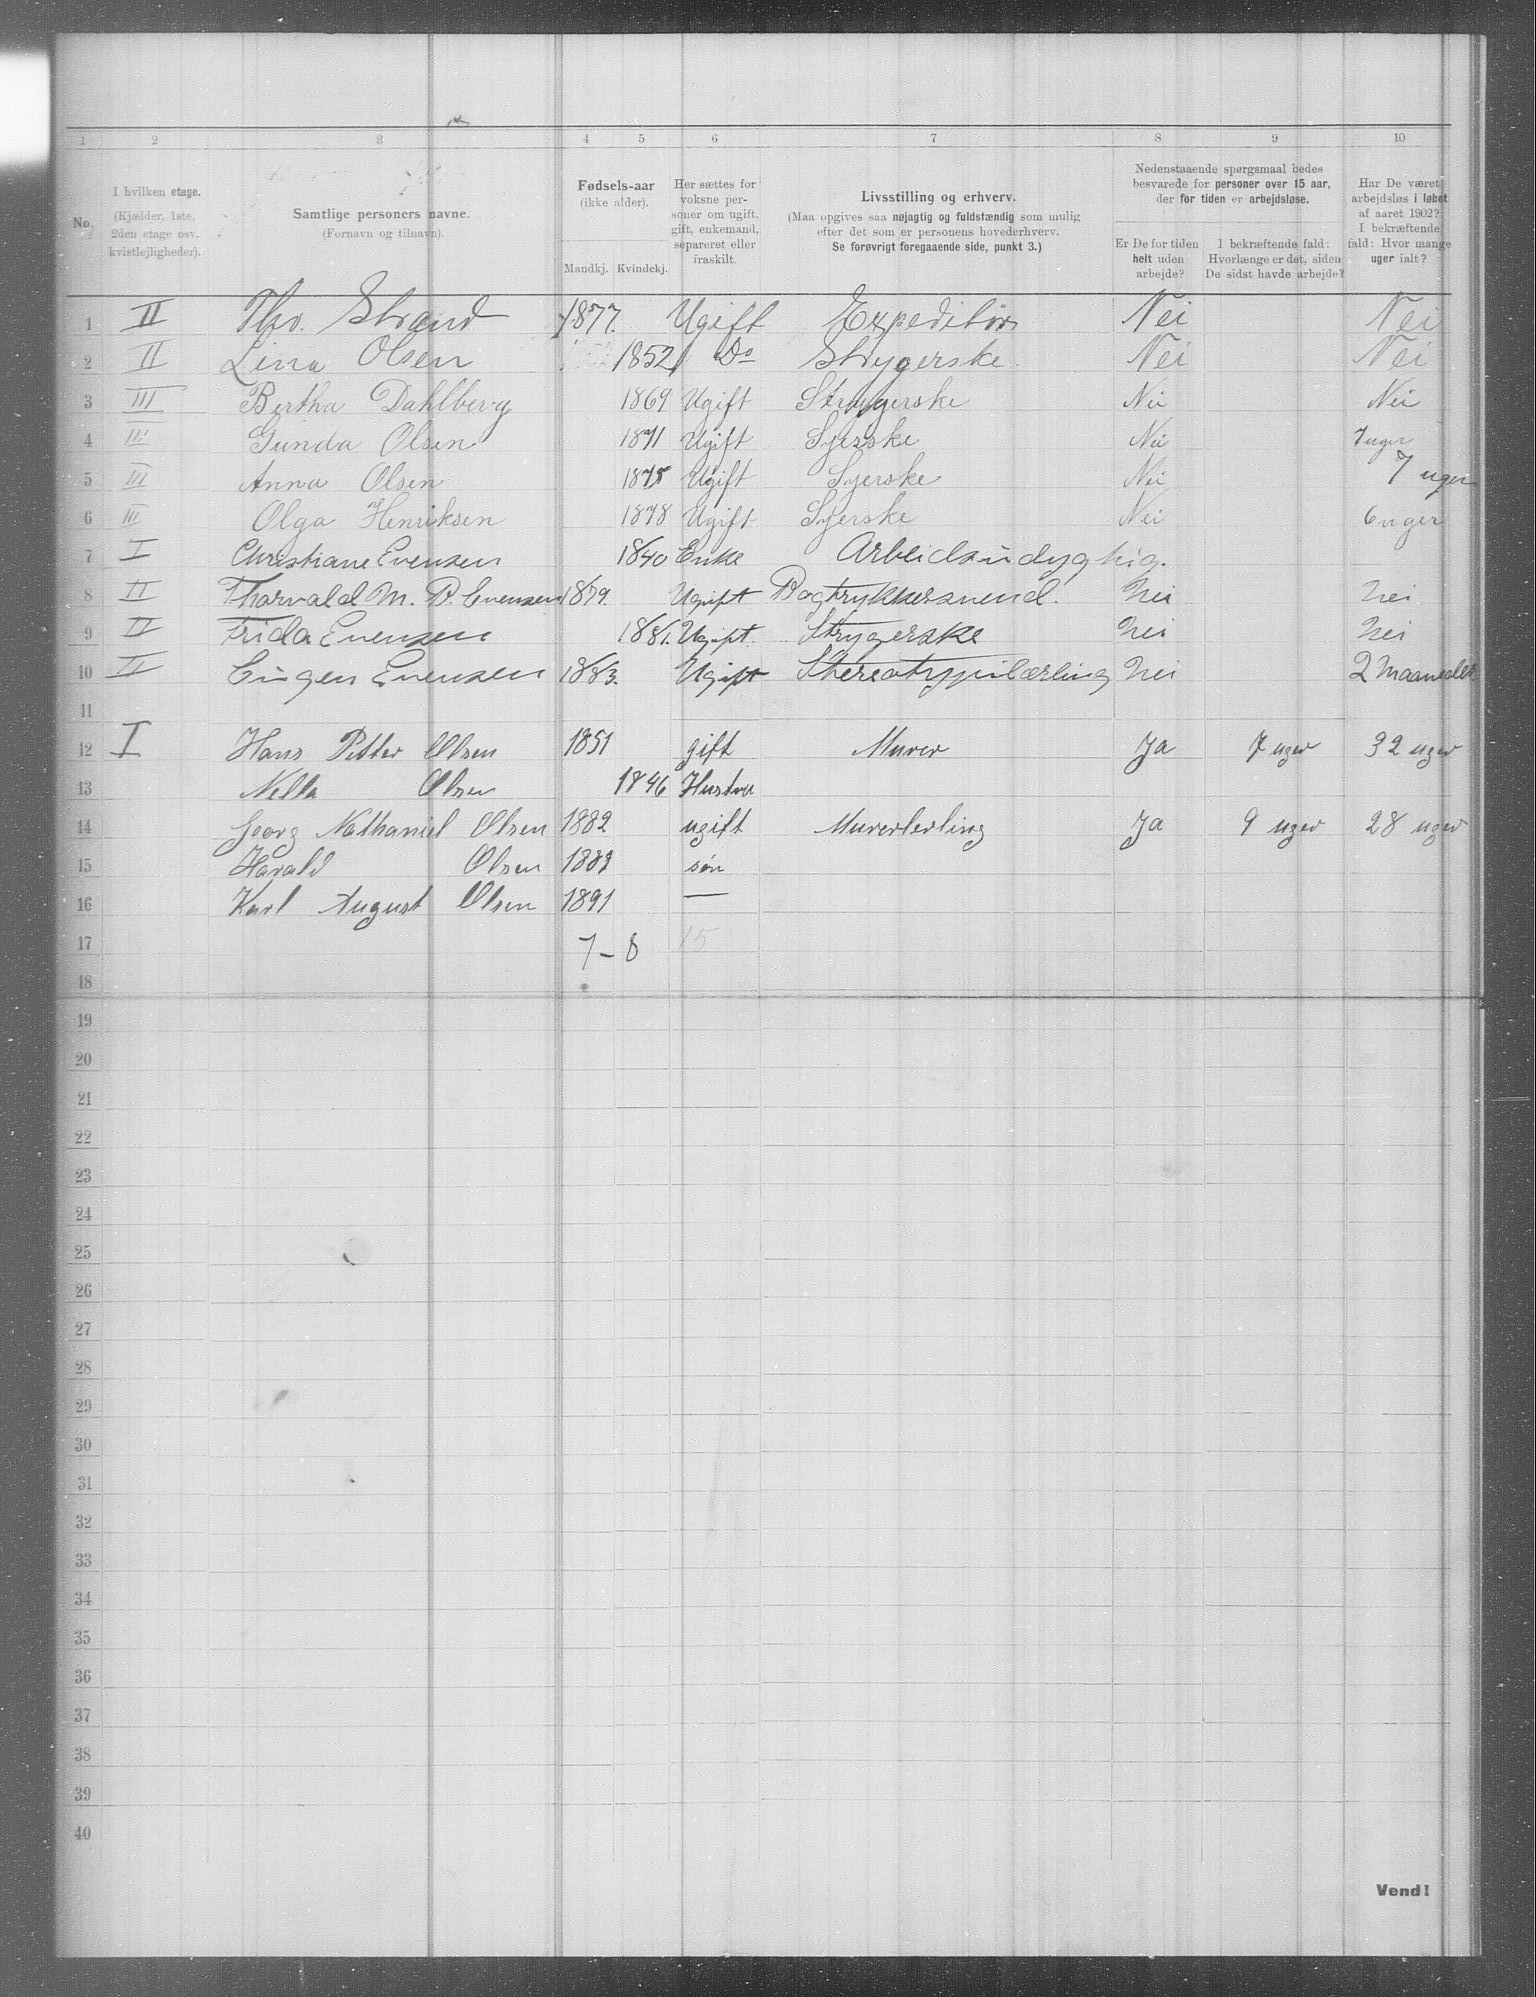 1 2 3 4 5 6 7 8 9 10
No.
I hvilken etage.
(Kjælder, 1ste,
2den etage osv.
kvistlejligheder).
Samtlige personers navne.
(Fornavn og tilnavn).
Fødsels-aar
(ikke alder).
Mandkj. Kvindekj.
Her sættes for
voksne per-
soner om ugift,
gift, enkemand,
separeret eller
fraskilt.
Livsstilling og erhverv.
(Maa opgives saa nøjagtig og fuldstændig som mulig
efter det som er personens hovederhverv.
Se forøvrigt foregaaende side, punkt 3.)
Nedenstaaende spørgsmaal bedes
besvarede for personer over 15 aar,
der for tiden er arbejdsløse.
Er De for tiden
helt uden
arbejde?
I bekræftende fald:
Hvorlænge er det, siden
De sidst havde arbejde?
Har De været
arbejdsløs i løbet
af aaret 1902?
I bekræftende
fald: Hvor mange
uger ialt?
1 II Tho. Strand 1877. Ugift Expeditør Nei Nei
2 II Lina Olsen 1852 Do Strygerske Nei Nei
3 III Bertha Dahlberg 1869 Ugift Strygerske Nei Nei
4 III Gunda Olsen 1871 Ugift Syerske Nei 7 uger
5 III Anna Olsen 1875 Ugift Syerske Nei 7 uger
6 III Olga Henriksen 1878 Ugift Syerske Nei 6 uger
7 I Christiane Evensen 1840 Enke Arbeidsudygtig.
8 II Thorvald M. B. Evensen 1879. Ugift Bogtrykkersvend. Nei Nei
9 II Frida Evensen 1881. Ugift. Strygerske Nei Nei
10 II Eugen Evensen 1883. Ugift Stereotypilærling Nei 2 Maaneder
11
12 I Hans Petter Olsen 1851 gift Murer Ja 7 uger 32 uger
13 Nella Olsen 1846 Hustru
14 Georg Nathaniel Olsen 1882 ugift Murerlerling Ja 9 uger 28 uger
15 Harald Olsen 1889 søn
16 Karl August Olsen 1891 —
17 7-8 15
18
19
20
21
22
23
24
25
26
27
28
29
30
31
32
33
34
35
36
37
38
39
40
Vend!